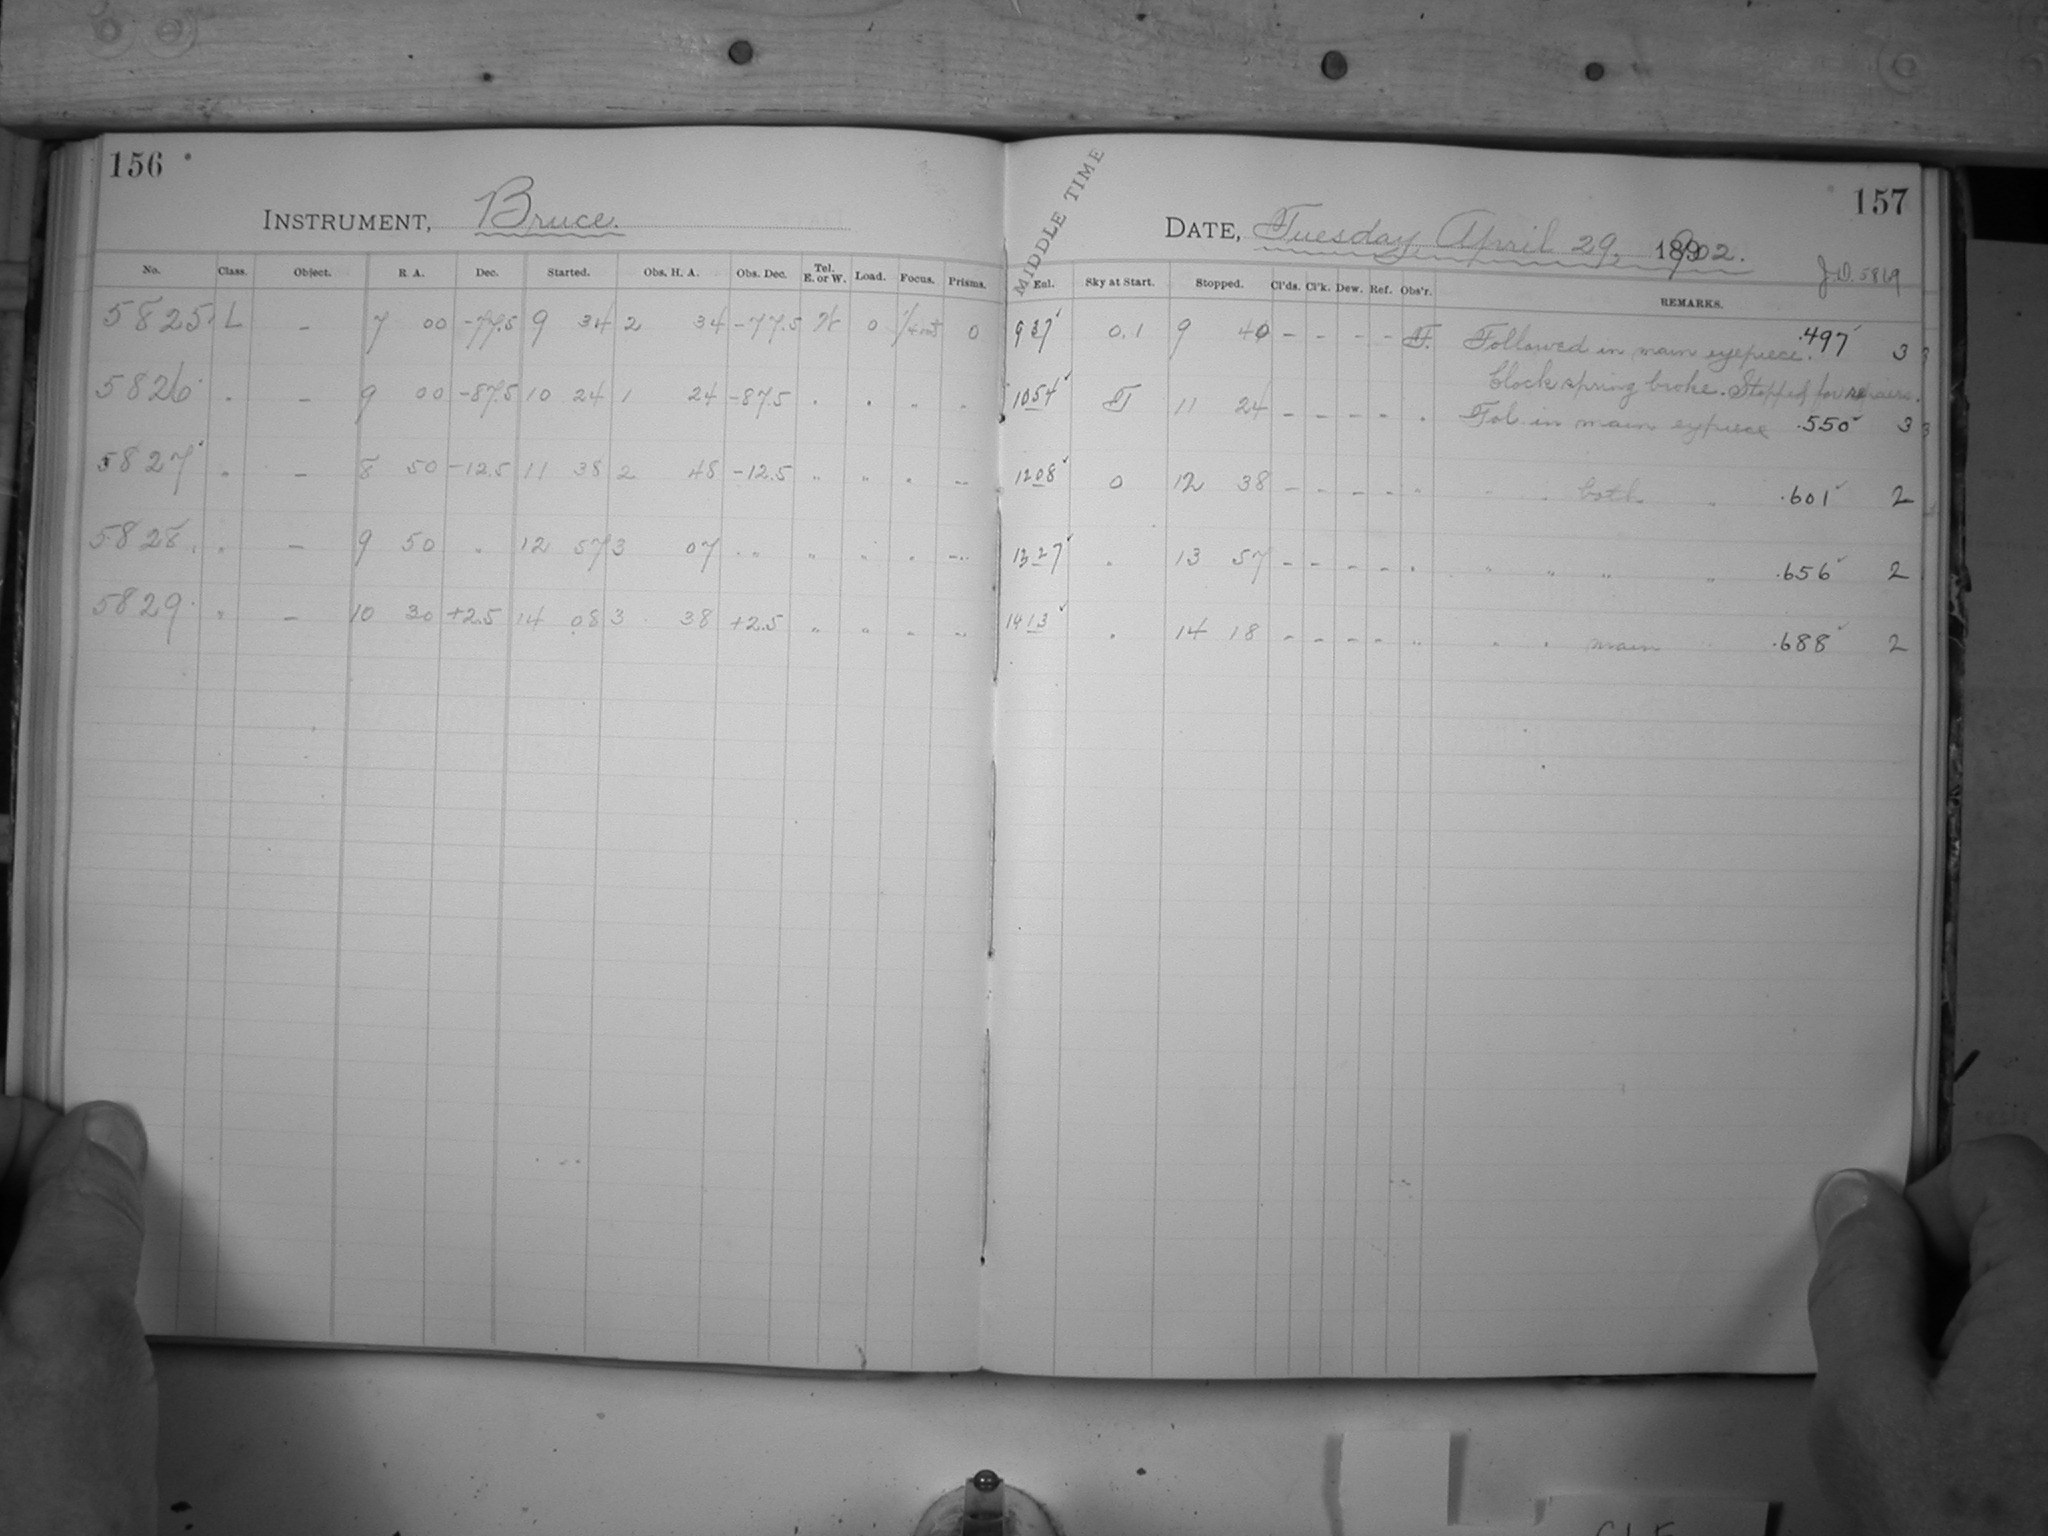 156
157
INSTRUMENT, Bruce.
MIDDLE TIME
DATE, Tuesday April 29, 1902.
J.D. 5869
No. Class. Object. R. A. Dec. Started. Obs. H. A. Obs. Dec. Tel. E. or W. Load. Focus. Prisms. Enl. Sky at Start. Stopped. Cl'ds. Cl'k. Dew. Ref. Obs'r. REMARKS.
5825 L – 7 00 -77.5 9 34 2 34 -77.5 W 0 1/4 out 0 937 0.1 9 40 – – – – F. Followed in main eyepiece. .497 3
Clock spring broke. Stopped for repairs.
5826 " – 9 00 -87.5 10 24 1 24 -87.5 " " " " 1054 F 11 24 – – – – " Fol. in main eyepiece .550 3
5827 " – 8 50 -12.5 11 38 2 48 -12.5 " " " " 1208 0 12 38 – – – – " " " both " .601 2
5828 " – 9 50 " 12 57 3 07 " " " " " 1327 " 13 57 – – – – " " " " " .656 2
5829 " – 10 30 +2.5 14 08 3 38 +2.5 " " " " 1413 " 14 18 – – – – " " " main " .688 2